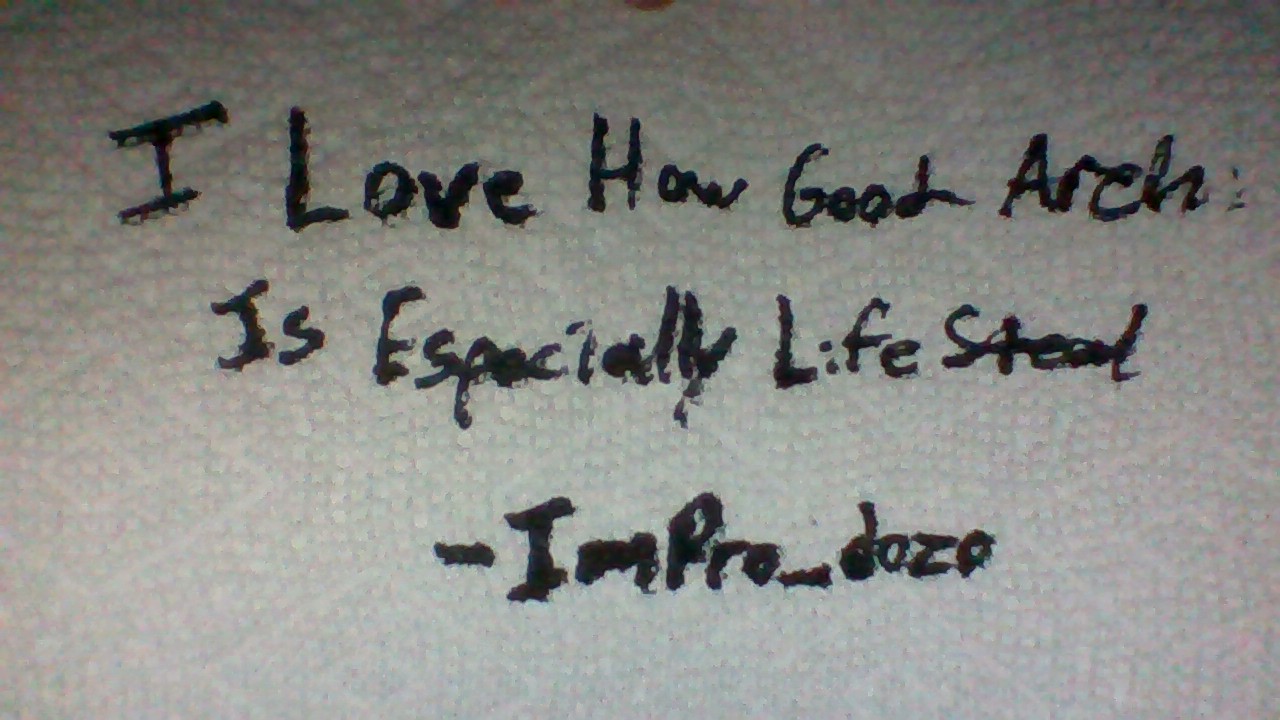 I Love How Good Arch:
Is Especially Life Steal
-ImPro_dozo